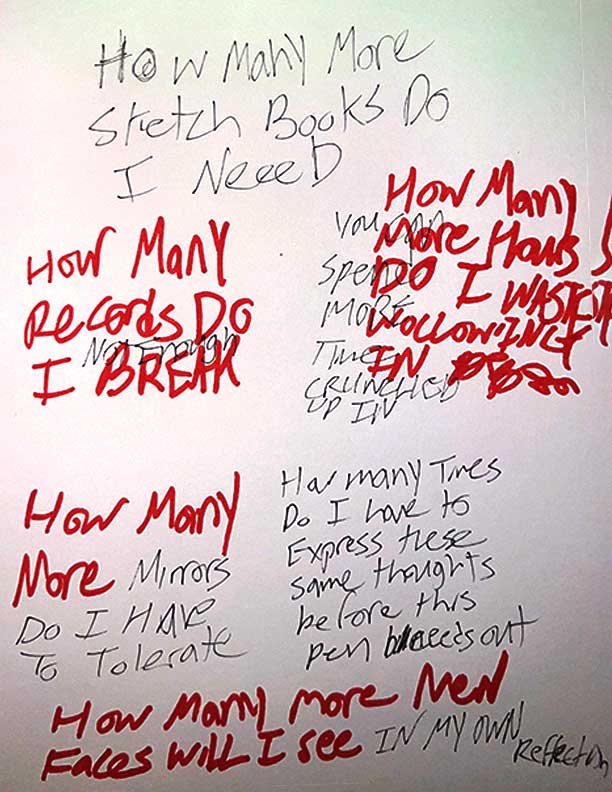 How Many More
Sketch Books Do
I Neeed
How Many
Records Do
I BREAK
Not Enough
How Many
More Hours
DO I WASTE
WOLLOWING
IN
you can
Spend
MORE
Time
CRUNCHED
UP IN
How Many
More Mirrors
Do I HAVE
To Tolerate
How many Times
Do I have to
Express these
same thoughts
before this
pen bleeds out
How Many more New
Faces Will I see IN MY OWN
Reflection